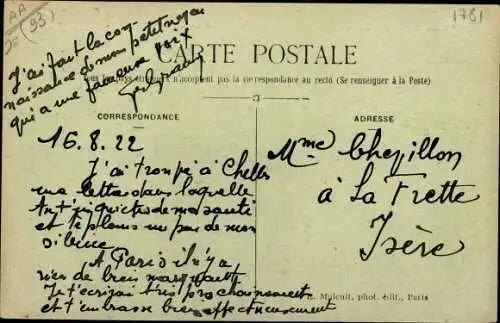 AA
(93)
1781
J'ai fait la con
naissance de mon petit neveu
qui a une fameuse voix
CARTE POSTALE
Tous les pays étrangers n'acceptent pas la correspondance au recto (Se renseigner à la Poste)
CORRESPONDANCE
ADRESSE
16.8.22
J'ai trompé à Chelles
ma lettre dans laquelle
inquiètes de ma santé
et te plains un peu de mon
silence
A Paris il n'y a
rien de bien marquant
Je t'écrirai très prochainement
et t'embrasse bien affectueusement
Mme Chepillon
à La Frette
Isère
E. Malcuit, phot. édit., Paris